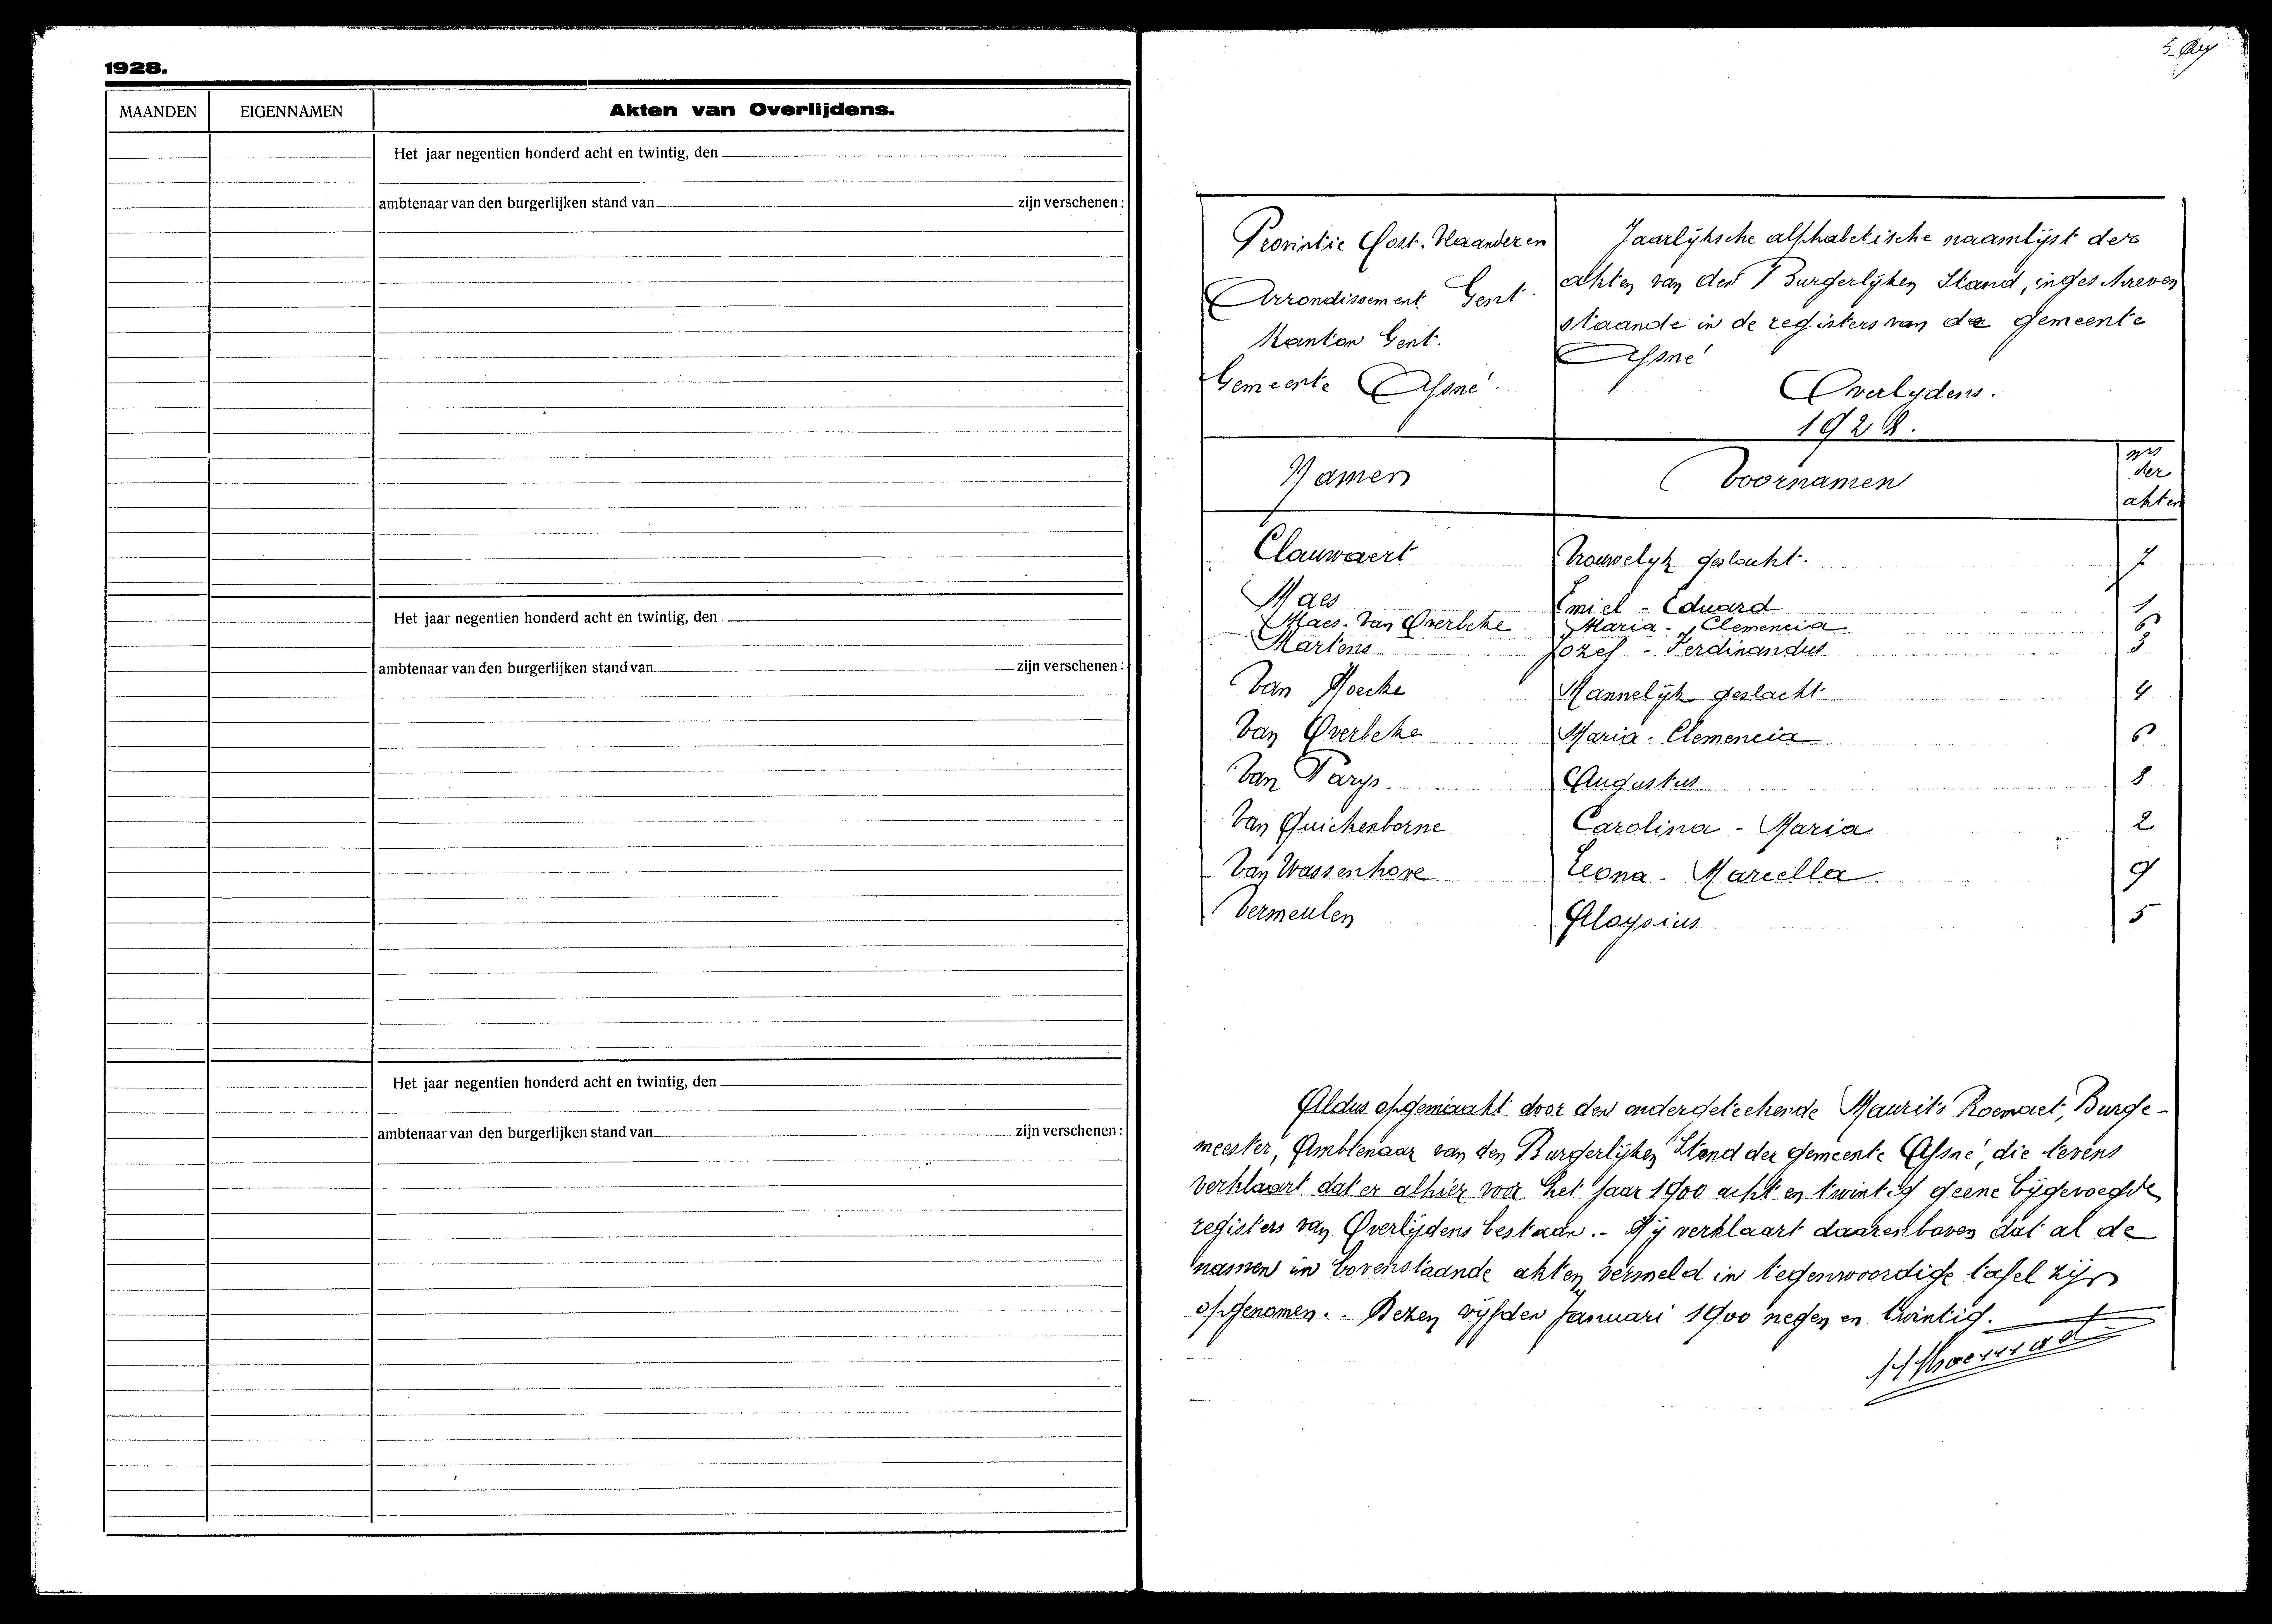 1928.
MAANDEN EIGENNAMEN Akten van Overlijdens.
Het jaar negentien honderd acht en twintig, den
ambtenaar van den burgerlijken stand van zijn verschenen:
Het jaar negentien honderd acht en twintig, den
ambtenaar van den burgerlijken stand van zijn verschenen:
Het jaar negentien honderd acht en twintig, den
ambtenaar van den burgerlijken stand van zijn verschenen:
Provintie Oost-Vlaanderen
Arrondissement Gent.
Kanton Gent.
Gemeente Afsné.
Jaarlijksche alphabetische naamlijst der
akten van den Burgerlijken Stand, ingeschreven
staande in de registers van de gemeente
Afsné
Overlydens.
1928.
Namen Voornamen nrs der akten
Clauwaert Vrouwelyk geslacht. 7
Maes Emiel - Eduard 1
Maes-Van Overbeke Maria - Clemencia 6
Martens Jozef - Ferdinandus 3
Van Hoecke Mannelijk geslacht 4
Van Overbeke Maria - Clemencia 6
Van Parys Augustus 8
Van Quickenborne Carolina - Maria 2
Van Wassenhove Leona - Marcella 9
Vermeulen Aloysius 5
Aldus opgemaakt door den ondergeteekende Maurits Roemaet, Burge-
meester, Ambtenaar van den Burgerlijken Stand der gemeente Afsné, die tevens
verklaart dat er alhier voor het jaar 1900 acht en twintig geene bijgevoegde
registers van Overlijdens bestaan.- Hij verklaart daarenboven dat al de
namen in bovenstaande akten vermeld in tegenwoordige tafel zijn
opgenomen. . Dezen vijfden Januari 1900 negen en twintig.